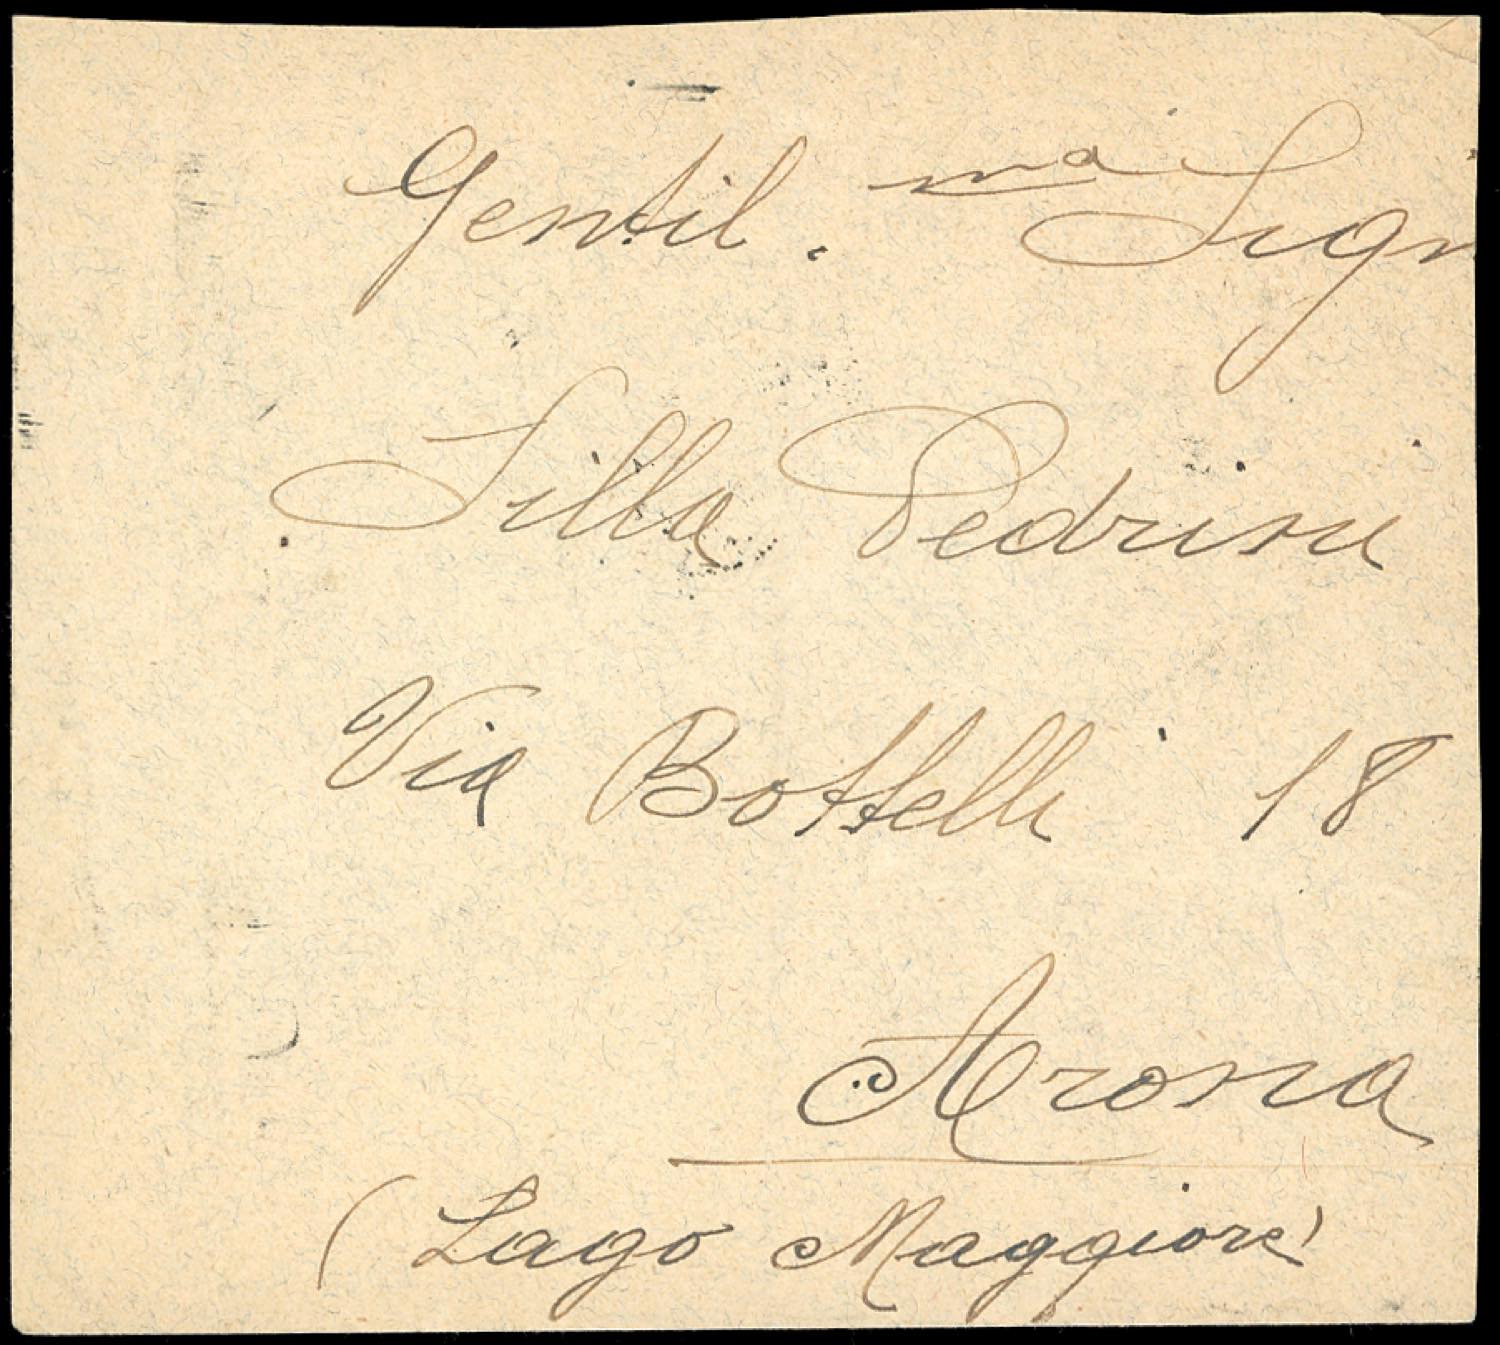 Gentil. ma Sign
Silla Pedrini
Via Bottelli 18
Arona
(Lago Maggiore)